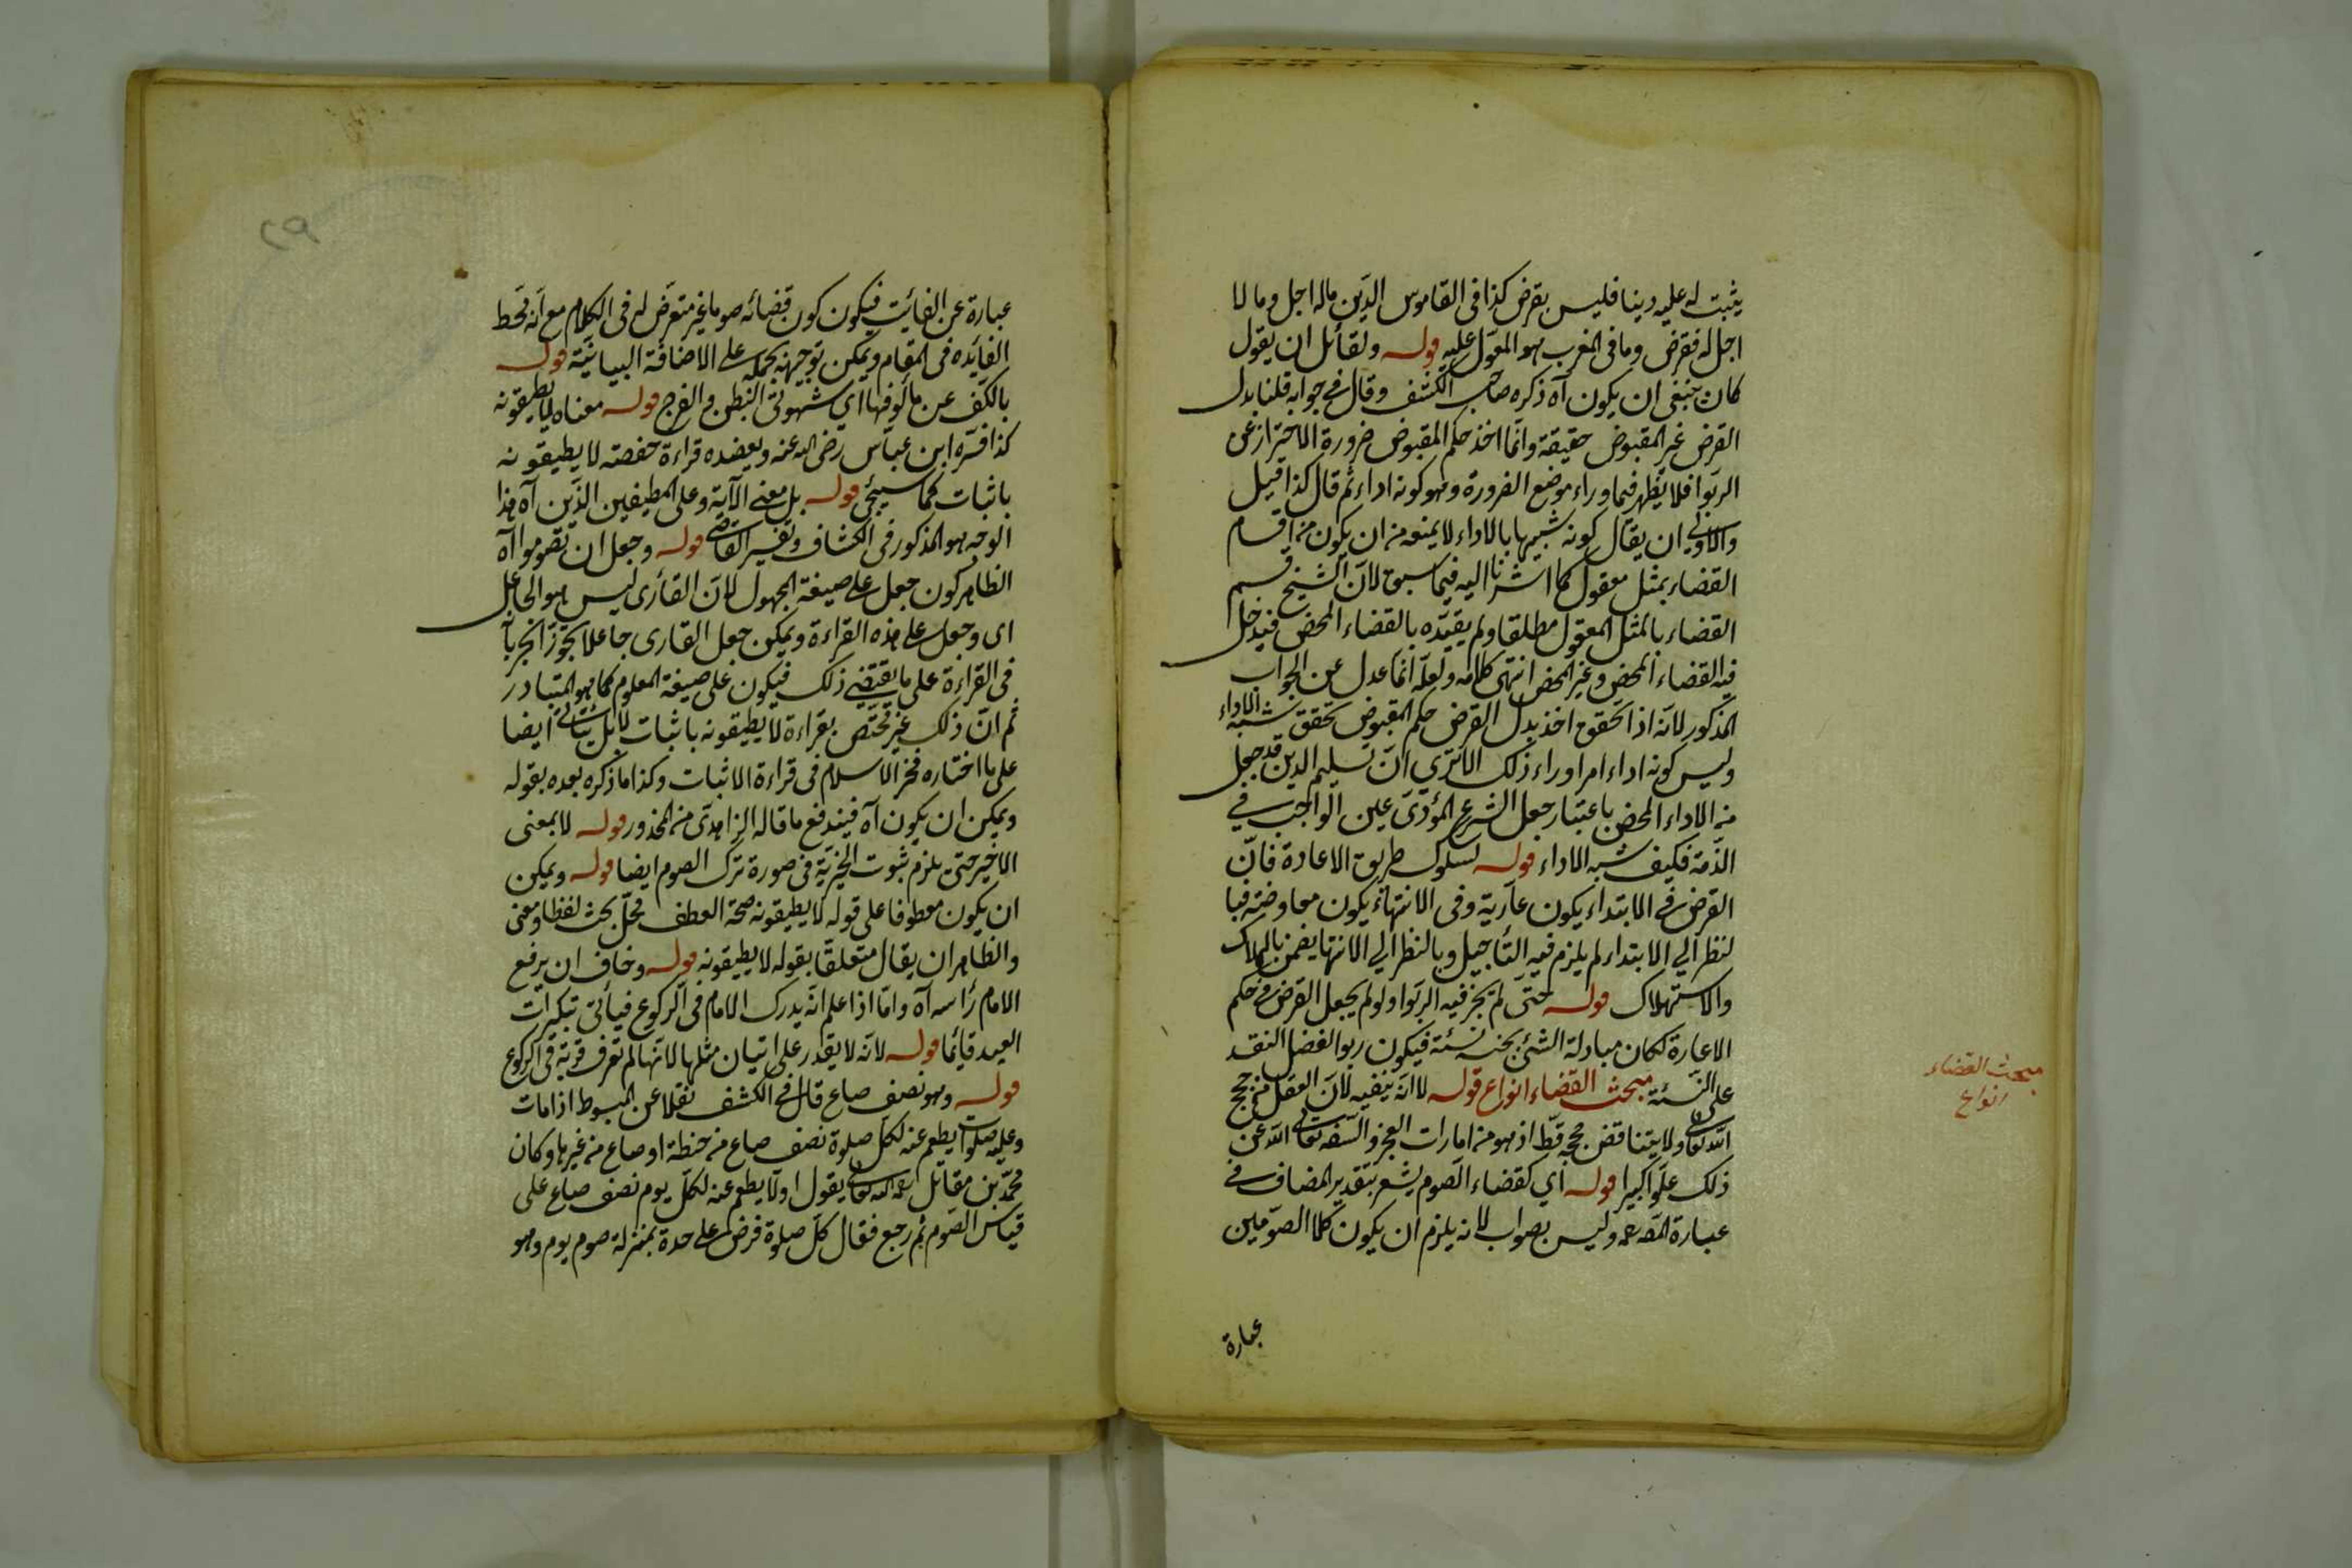 يثبت له عليه دينا فليس بقرض كذا فى القاموس الدّين ماله اجل وما لا
اجل له فقرض وما فى المغرب هو المعوّل عليه قوله ولقائل ان يقول
كان ينبغى ان يكون آه ذكره صاحب الكشف وقال فى جوابه قلنا بدل
القرض غير المقبوض حقيقة وانّما اخذ حكم المقبوض ضرورة الاحتراز عن
الربوا فلا يظهر فيما وراء موضع الضرورة وهو كونه اداء ثم قال كذا قيل
والاولى ان يقال كونه شبيها بالاداء لا يمنعه من ان يكون من اقسام
القضاء بمثل معقول كما اشرنا اليه فيما سبق لانّ الشيخ قسم
القضاء بالمثل المعقول مطلقا ولم يقيّده بالقضاء المحض فيدخل
فيه القضاء المحض وغير المحض انتهى كلامه ولعلّه انّما عدل عن الجواب
المذكور لانّه اذا تحقق اخذ بدل القرض حكم المقبوض تحقق شبه الاداء
وليس كونه اداء امرا وراء ذلك الا ترى انّ تسليم الدين قد جعل
من الاداء المحض باعتبار جعل الشرع المؤدّى عين الواجب فى
الذّمة فكيف شبه الاداء قوله لسلوك طريق الاعادة فانّ
القرض فى الابتداء يكون عاريّة وفى الانتهاء يكون معاوضة فبا
لنظر الى الابتداء لم يلزم فيه التأجيل وبالنظر الى الانتها يضمن بالهلاك
والاستهلاك قوله حتى لم يجز فيه الربوا ولو لم يجعل القرض فى حكم
الاعارة لكان مبادلة الشئ بجنسه نسئة فيكون ربوا لفضل النقد
على النسئة مبحث القضاء انواع قوله لا انّه ينفيه لانّ العقل من حجج
اللّه تعالى ولا يتناقض حججه قطّ اذ هو من امارات العجز والسّفه تعالى اللّه عن
ذلك علوّا كبيرا قوله اى كقضاء الصّوم يشعر بتقدير المضاف فى
عبارة المص رحمه وليس بصواب لانه يلزم ان يكون كلا الصّومين
عبارة
مبحث القضاء
انواع
٢٩
عبارة عن الفائت فيكون كون قضائه صوما غير متعرّض له فى الكلام مع انّه محط
الفائده فى المقام ويمكن توجيهه بحمله على الاضافة البيانيّة قوله
بالكفّ عن مألوفها اى شهوتى البطن والفرج قوله معناه لا يطيقونه
كذا فسّره ابن عبّاس رضى الله عنه ويعضده قراءة حفصه لا يطيقونه
باثبات كما سيجئ قوله بل معنى الآية وعلى المطيقين الذّين آه هذا
الوجه هو المذكور فى الكشاف وتفسير القاضى قوله وجعل ان تصوموا آه
الظاهر كون جعل على صيغة المجهول لانّ القارى ليس هو الجاعل
اى وجعل على هذه القراءة ويمكن جعل القارى جاعلا تجوّزا لجريا
فى القراءة على ما يقتضى ذلك فيكون على صيغة المعلوم كما هو المتبادر
ثم انّ ذلك غير مختص بقراءة لا يطيقونه باثبات لا بل يتأتى ايضا
على ما اختاره فخر الاسلام فى قراءة الاثبات وكذا ما ذكره بعده بقوله
ويمكن ان يكون آه فيندفع ما قاله الزاهدى من المحذور قوله لا بمعنى
الاخير حتى يلزم ثبوت الخيريّة فى صورة ترك الصوم ايضا قوله ويمكن
ان يكون معطوفا على قوله لا يطيقونه صحة العطف محلّ بحث لفظا ومعنى
والظاهر ان يقال متعلقا بقوله لا يطيقونه قوله وخاف ان يرفع
الامام رأسه آه وامّا اذا علم انّه يدرك الامام فى الركوع فيأتى تبكيرات
العيد قائما قوله لانّه لا يقدر على اتيان مثلها لانّها لم تعرف قربة فى الركوع
قوله وهو نصف صاع قال فى الكشف نقلا عن المبسوط اذا مات
وعليه صلوات يطعم عنه لكل صلوة نصف صاع من حنطة او صاع من غيرها وكان
محمّد بن مقاتل رحمه الله تعالى يقول اولا يطعم عنه لكلّ يوم نصف صاع على
قياس الصّوم ثم رجع فقال كلّ صلوة فرض على حدة بمنزلة صوم يوم وهو